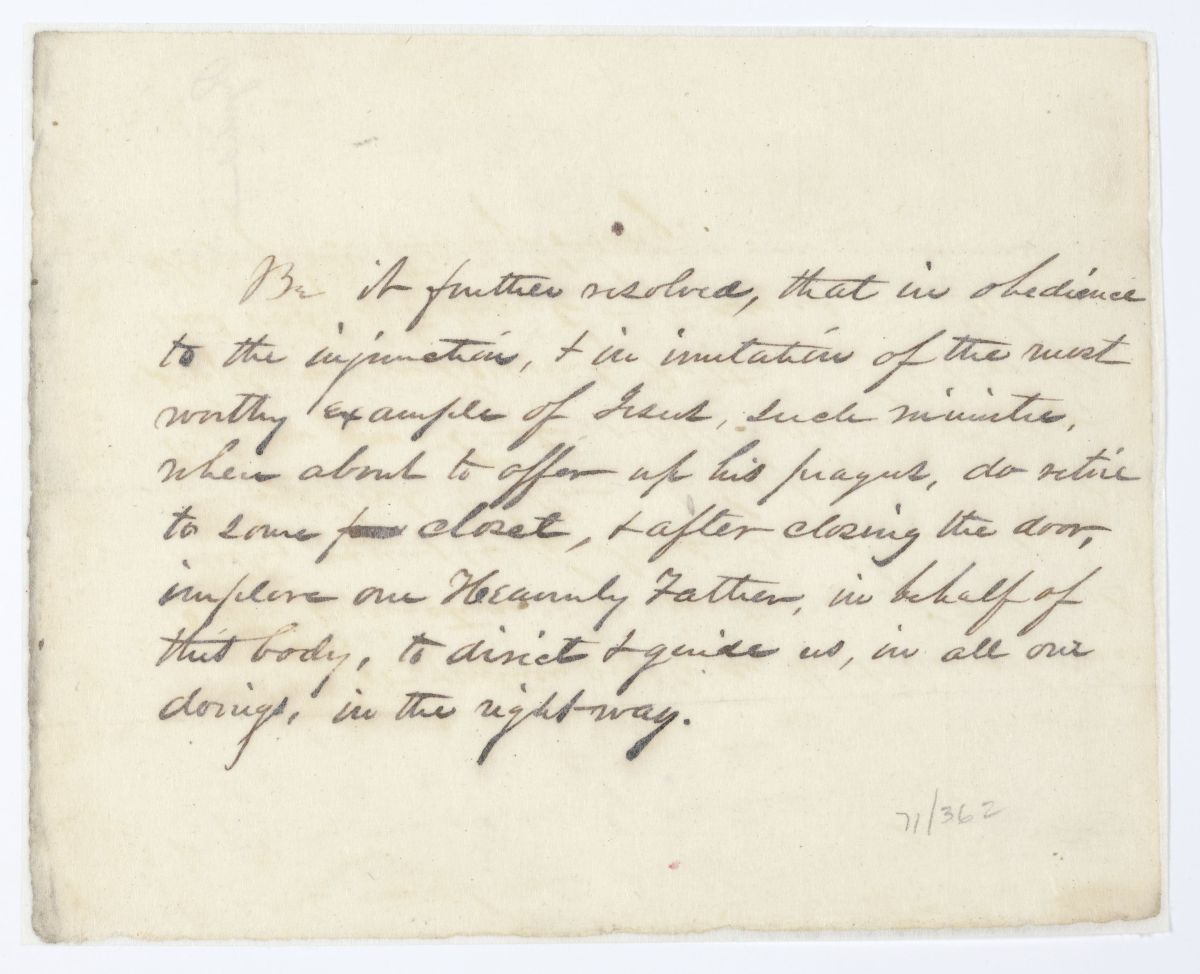 Be it further resolved, that in obedience
to the injunction, & in imitation of the most
worthy example of Jesus, such minister,
when about to offer up his prayers, do retire
to some closet, & after closing the door,
implore our Heavenly Father, in behalf of
this body, to direct & guide us, in all our
doings, in the right way.
71/362